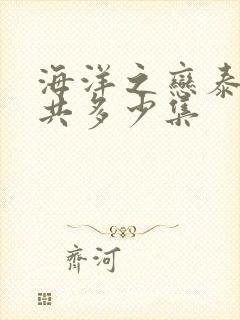 海洋之戀泰
共多少集
齊河